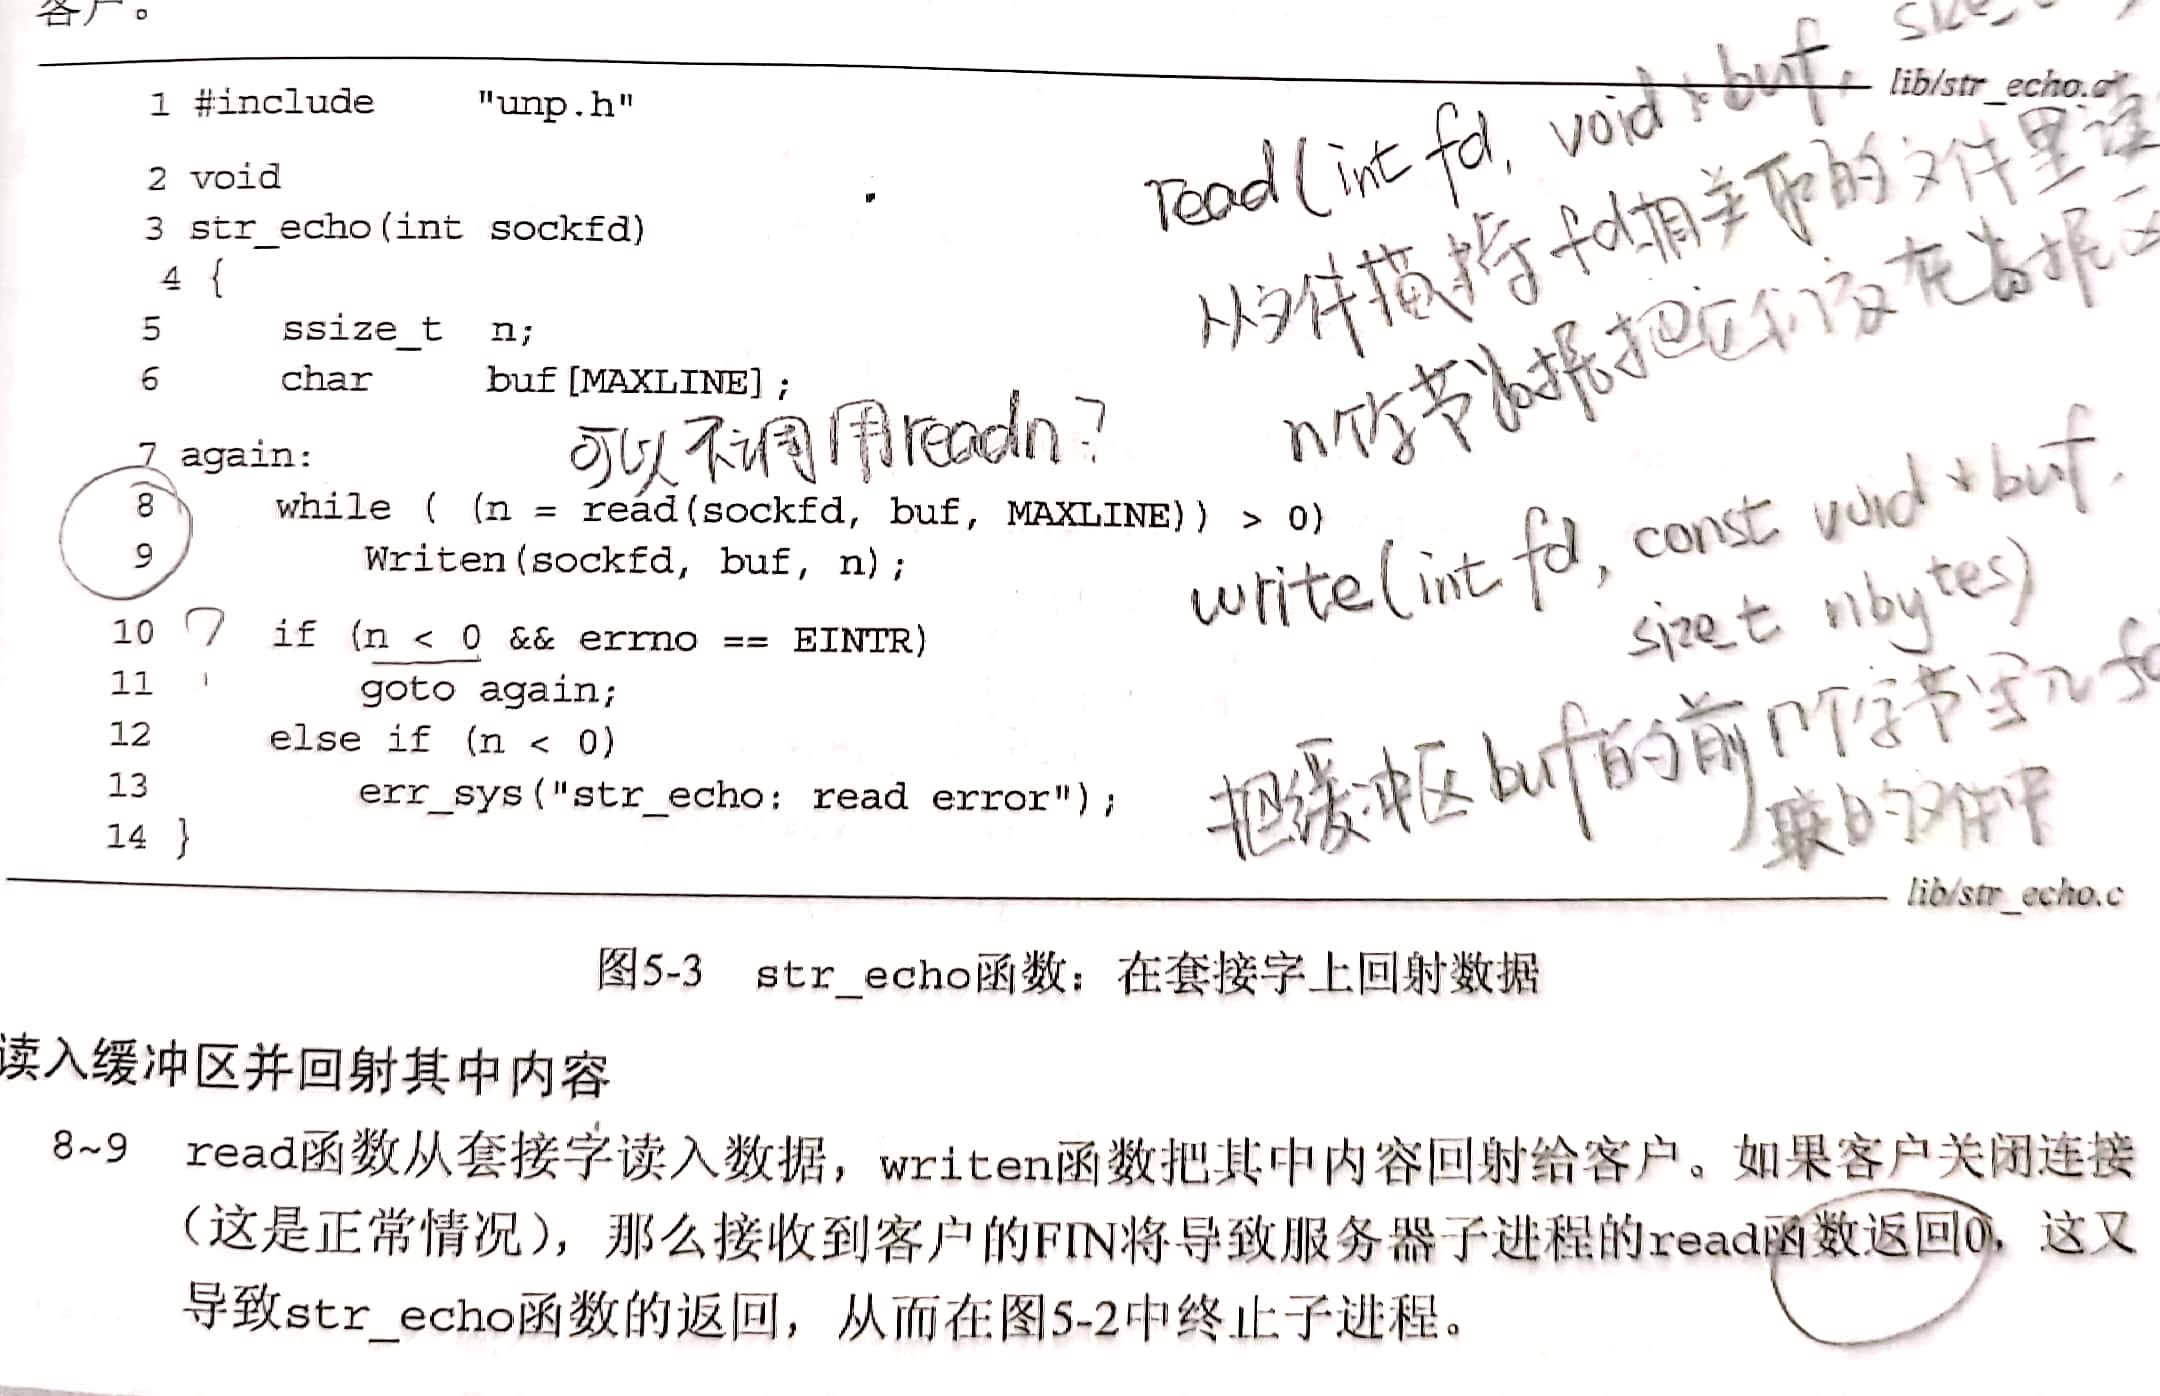 客户。
size_t
lib/str_echo.c
1 #include "unp.h"
read(int fd, void *buf,
2 void
3 str_echo(int sockfd)
从文件描述符fd相关联的文件里读
4 {
5 ssize_t n;
n个字节数据把它们放在数据区
6 char buf[MAXLINE];
可以不调用readn?
7 again:
8 while ( (n = read(sockfd, buf, MAXLINE)) > 0)
write(int fd, const void *buf,
9 Writen(sockfd, buf, n);
size_t nbytes)
10 ? if (n < 0 && errno == EINTR)
11 goto again;
把缓冲区buf的前n个字节写入fd
12 else if (n < 0)
联的文件中
13 err_sys("str_echo: read error");
14 }
lib/str_echo.c
图5-3 str_echo函数：在套接字上回射数据
读入缓冲区并回射其中内容
8~9 read函数从套接字读入数据，writen函数把其中内容回射给客户。如果客户关闭连接
（这是正常情况），那么接收到客户的FIN将导致服务器子进程的read函数返回0，这又
导致str_echo函数的返回，从而在图5-2中终止子进程。